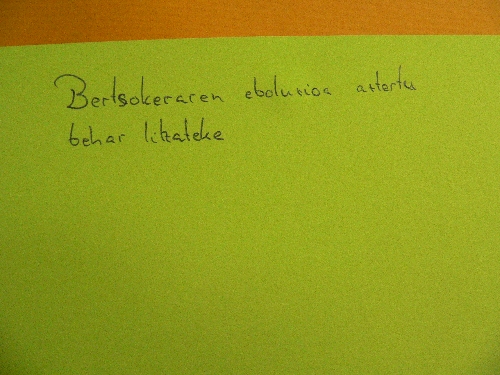 Bertsokeraren eboluzioa aztertu
behar litzateke